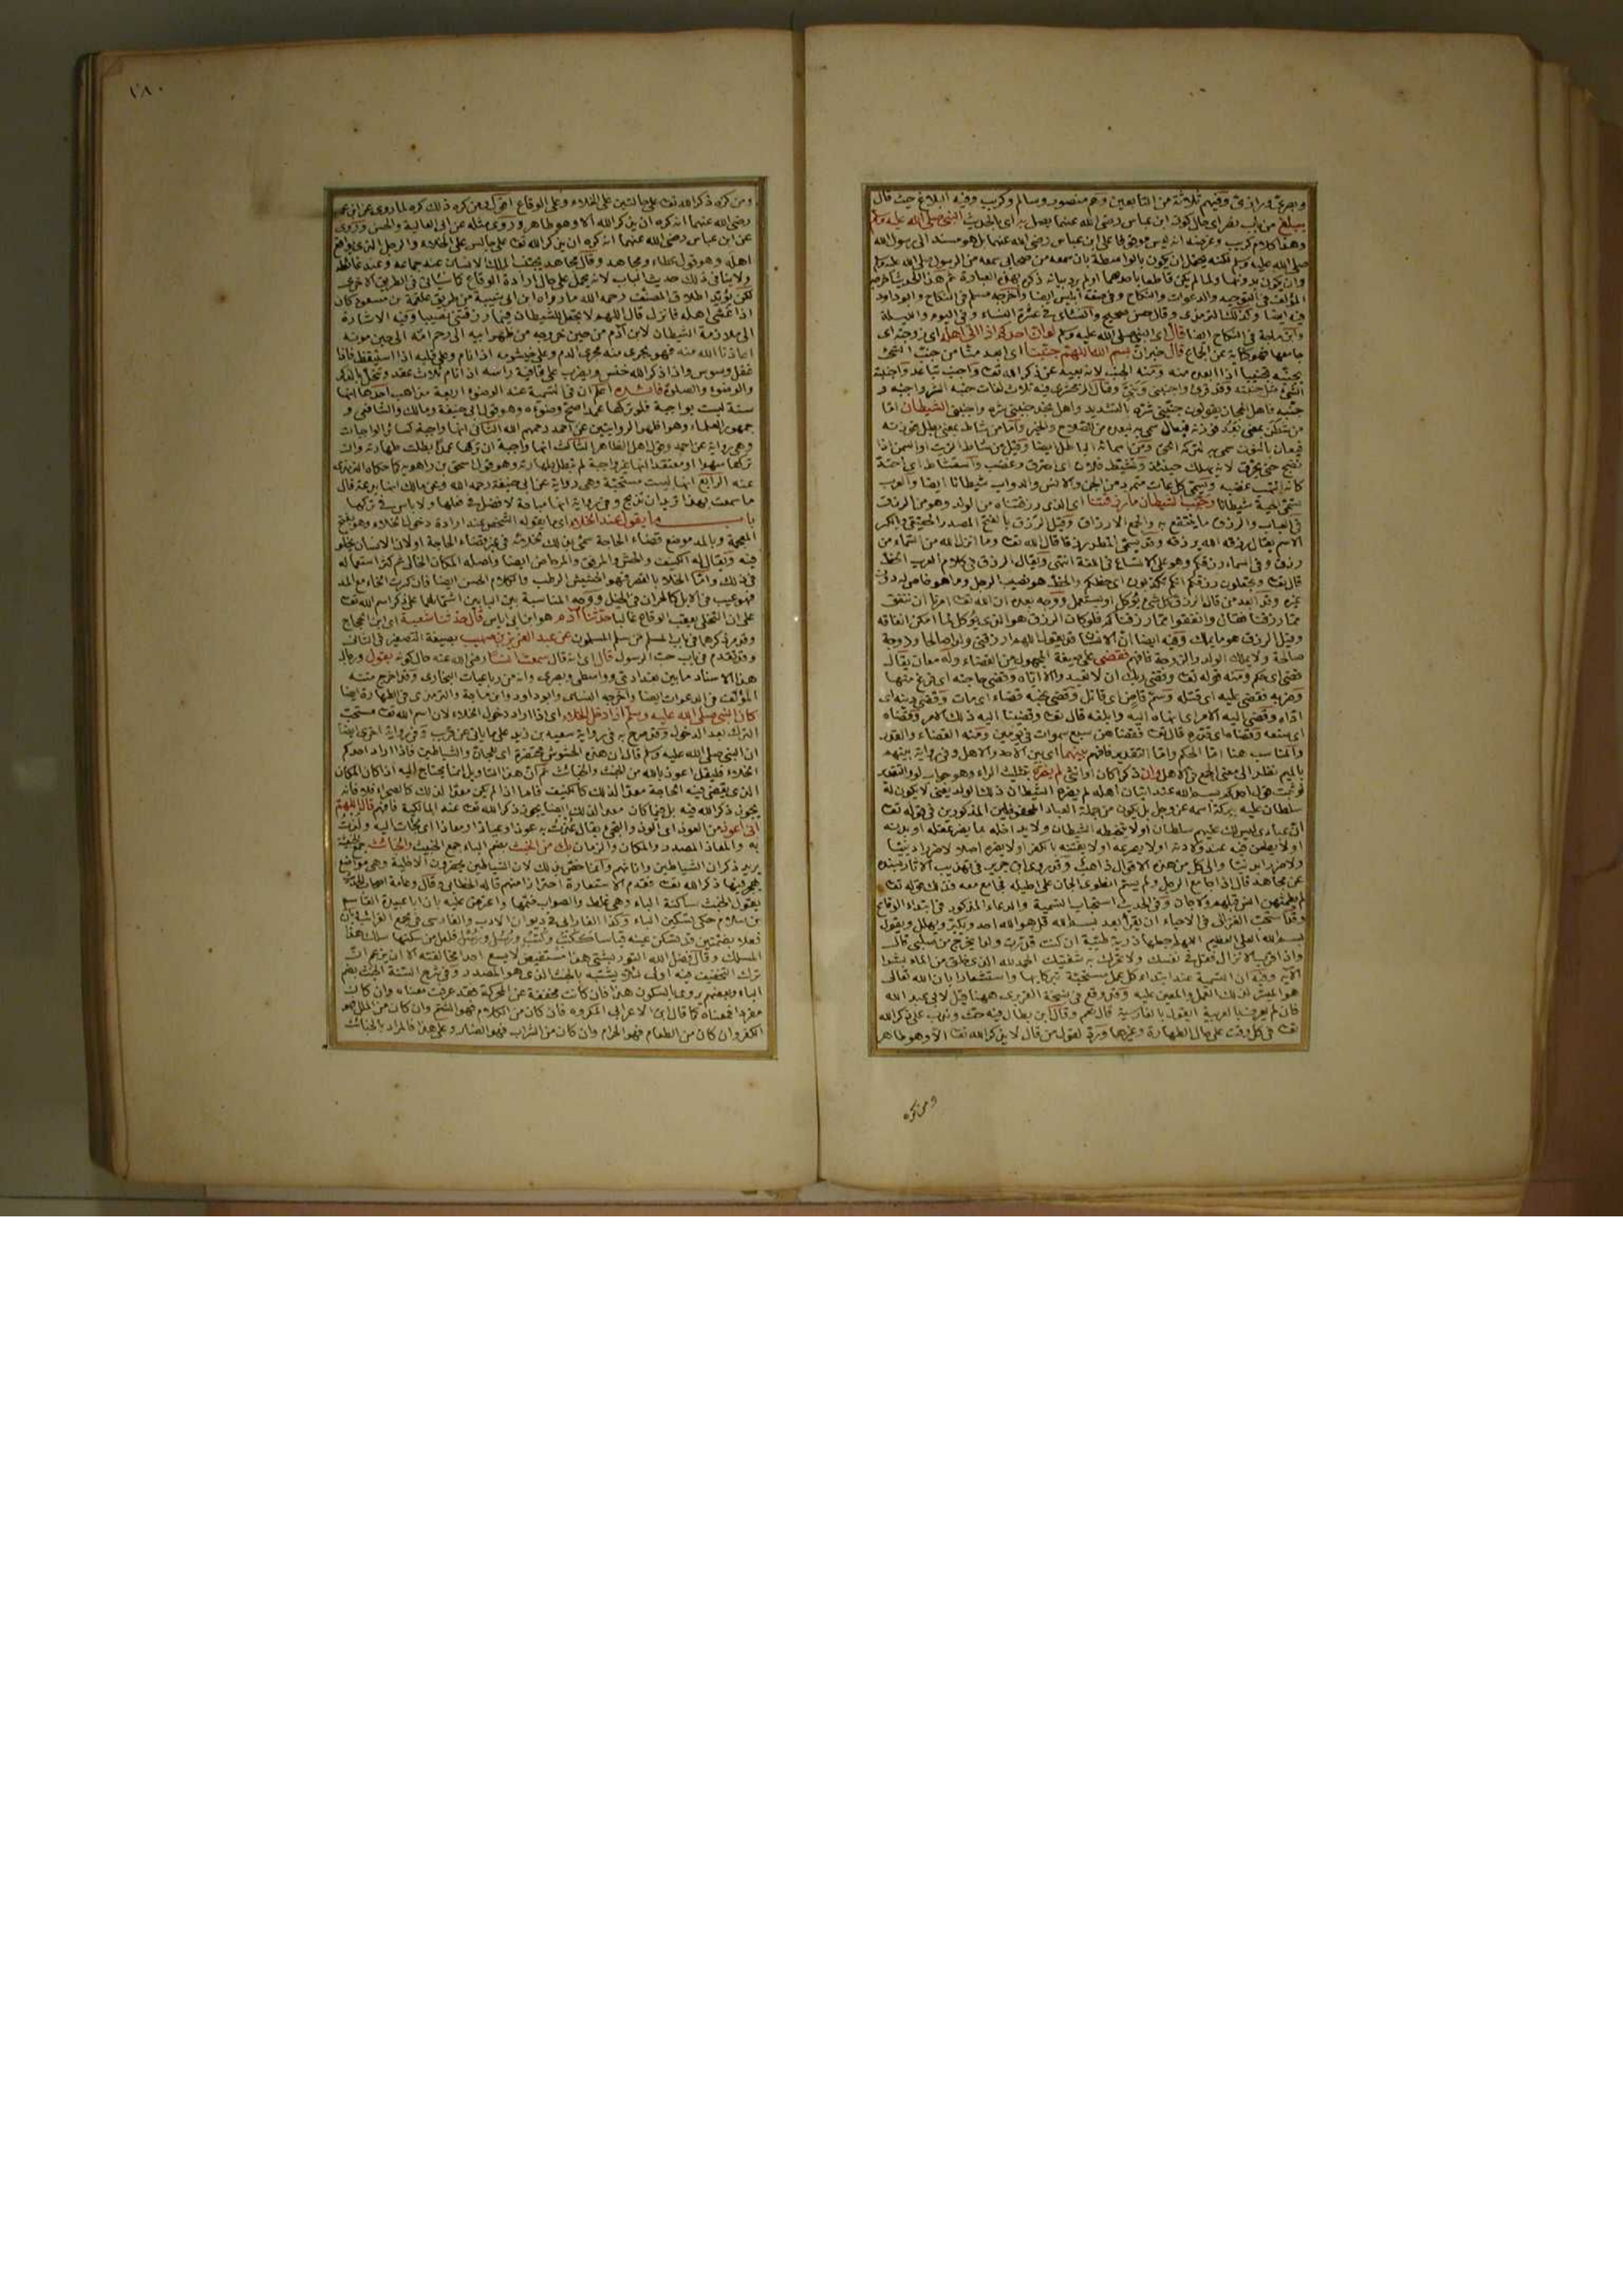 وبصرى ورازى وفيهم ثلاثة من التابعين وهم منصور وسالم وكريب وفيه البلاغ حيث قال
يبلغ من باب نصر اى حال كون ابن عباس رضى الله عنهما يصل به اى بالحديث النبى صلى الله عليه وسلم
وهذا كلام كريب وغرضه انه ليس موقوفا على ابن عباس رضى الله عنهما بل هو مسند الى رسول الله
صلى الله عليه وسلم لكنه يحتمل ان يكون بالواسطة بان سمعه من صحابى سمعه من الرسول صلى الله عليه وسلم
وان يكون بدونها ولما لم يكن قاطعا باحدهما اولم يرد بيانه ذكره بهذه العبارة ثم هذا الحديث اخرجه
المؤلف فى التوحيد والدعوات والنكاح وفى صفة ابليس ايضا واخرجه مسلم فى النكاح وابو داود
فيه ايضا وكذلك الترمذى وقال حسن صحيح والنسائى فى عشرة النساء وفى اليوم والليلة
وابن ماجة فى النكاح ايضا قال اى النبى صلى الله عليه وسلم لو ان احدكم اذا اتى اهله اى زوجته اى
جامعها فهو كناية عن الجماع قال خبر ان بسم الله اللهم جنبنا اى ابعد منا من جنب الشئ
من شطن بمعنى بعد فوزنه فيعال سمى به لبعده من الصلاح والخير واما من شاط بمعنى بطل فوزنه
كانه التهب غضبه ويسمى كل عات متمرد من الجن والانس والدواب شيطانا ايضا والعرب
تسمى الحية شيطانا وجنب الشيطان ما رزقتنا اى الذى رزقتناه من الولد وهو من الرزق
فى العباب والرزق ما ينتفع به والجمع الارزاق وقيل الرزق بالفتح المصدر الحقيقى وبالكسر
الاسم يقال رزقه الله يرزقه وقد يسمى المطر رزقا قال الله تعالى وما انزل الله من السماء من
قال تعالى وتجعلون رزقكم انكم تكذبون اى حظكم والحظ هو نصيب الرجل وما هو خاص له دون
غيره وقد ابعد من قال الرزق كل شئ يؤكل او يستعمل ووجه بعده ان الله تعالى امرنا ان ننفق
مما رزقنا فقال وانفقوا مما رزقناكم فلو كان الرزق هو الذى يؤكل لما امكن انفاقه
وقيل الرزق هو ما يملك وفيه ايضا ان الانسان قد يقول اللهم ارزقنى ولدا صالحا وزوجة
صالحة ولا يملك الولد والزوجة فافهم فقضى على صيغة المجهول من القضاء وله معان يقال
قضى اى حكم ومنه قوله تعالى وقضى ربك ان لا تعبدوا الا اياه وقضى حاجته اى فرغ منها
وضربه فقضى عليه اى قتله وسم قاض اى قاتل وقضى نحبه قضاء اى مات وقضى دينه اى
اداه وقضى اليه الامر اى انهاه اليه وابلغه قال تعالى وقضينا اليه ذلك الامر وقضاه
اى صنعه وقضاه اى قدره قال تعالى فقضاهن سبع سموات فى يومين ومنه القضاء والقدر
والمناسب هنا اما الحكم واما التقدير فافهم بينهما اى بين الاحد والاهل وفى رواية بينهم
بالميم نظرا الى معنى الجمع فى الاهل ولد ذكرا كان او انثى لم يضره بتثليث الراء وهو جواب لو والتقدير
لو ثبت قول احدكم بسم الله عند اتيان اهله لم يضره الشيطان ذلك الولد يعنى لا يكون له
سلطان عليه ببركة اسمه عز وجل بل يكون من جملة العباد المحفوظين المذكورين فى قوله تعالى
ان عبادى ليس لك عليهم سلطان او لا يتخبطه الشيطان ولا يداخله بما يضر عقله او بدنه
او لا يطعن فيه عند ولادته او لا يصرعه او لا يفتنه بالكفر او لا يضره اصلا لا ضررا دينيا
ولا ضررا بدنيا والى كل من هذه الاقوال ذاهب وقد روى ابن جرير فى تهذيب الاثار بسنده
عن مجاهد قال اذا جامع الرجل ولم يسم انطوى الجان على احليله فجامع معه فذلك قوله تعالى
لم يطمثهن انس قبلهم ولا جان وفى الحديث استحباب التسمية والدعاء المذكور فى ابتداء الوقاع
وقد استحب الغزالى فى الاحياء ان يقرأ بعد بسم الله قل هو الله احد ويكبر ويهلل ويقول
بسم الله العلى العظيم اللهم اجعلها ذرية طيبة ان كنت قدرت ولدا يخرج من صلبى قال
واذا قرب الانزال فقل فى نفسك ولا تحرك به شفتيك الحمد لله الذى خلق من الماء بشرا
الآية وفيه ان التسمية عند ابتداء كل عمل مستحبة تبركا بها واستشعارا بان الله تعالى
هو الميسر لذلك العمل والمعين عليه وقد وقع فى نسخة الفربرى ههنا قيل لابى عبد الله
فان لم يعرف بالعربية ايقول بالفارسية قال نعم وقال ابن بطال فيه حث وندب على ذكر الله
تعالى فى كل وقت على حال الطهارة وغيرها ورد لقول من قال لا يذكر الله تعالى الا وهو طاهر
ومن كره
١٨٠
ومن كره ذكر الله تعالى على حالتين على الخلاء وعلى الوقاع
رضى الله عنهما انه كره ان يذكر الله الا وهو طاهر وروى مثله عن ابى العالية والحسن وروى
عن ابن عباس رضى الله عنهما انه كره ان يذكر الله تعالى على حالين على الخلاء والرجل الذى يواقع
اهله وهو قول عطاء ومجاهد وقال مجاهد يجتنب الملك الانسان عند جماعه وعند غائطه
ولا ينافى ذلك حديث الباب لانه يحمل على حال ارادة الوقاع كما سيأتى فى الطريق الاخرى
لكن يؤيد اطلاق المصنف رحمه الله ما رواه ابن ابى شيبة من طريق علقمة بن مسعود كان
اذا غشى اهله فانزل قال اللهم لا تجعل للشيطان فيما رزقتنى نصيبا وفيه الاشارة
الى ملازمة الشيطان لابن آدم من حين خروجه من ظهر ابيه الى رحم امه الى حين موته
اعاذنا الله منه فهو يجرى منه مجرى الدم وعلى خيشومه اذا نام وعلى قلبه اذا استيقظ فاذا
غفل وسوس واذا ذكر الله خنس ويضرب على قافية راسه اذا نام ثلاث عقد وتنحل بالذكر
والوضوء والصلوة فائدة اعلم ان فى التسمية عند الوضوء اربعة مذاهب احدها انها
سنة ليست بواجبة فلو تركها عمدا صح وضوءه وهو قول ابى حنيفة ومالك والشافعى و
جمهور العلماء وهو اظهر الروايتين عن احمد رحمهم الله الثانى انها واجبة كسائر الواجبات
وهى رواية عن احمد وقول اهل الظاهر الثالث انها واجبة ان تركها عمدا بطلت طهارته وان
تركها سهوا او معتقدا انها غير واجبة لم تبطل طهارته وهو قول اسحق بن راهويه كما حكاه الترمذى
عنه الرابع انها ليست مستحبة وهى رواية عن ابى حنيفة رحمه الله وعن مالك انها بدعة قال
ما سمعت بهذا تريد ان تذبح وفى رواية انها مباحة لا فضل فى فعلها ولا باس فى تركها
باب ما يقول عند الخلاء اى ما يقوله الشخص عند ارادة دخول الخلاء وهو بفتح
المعجمة وبالمد موضع قضاء الحاجة سمى بذلك لخلائه فى غير قضاء الحاجة او لان الانسان يخلو
فيه ويقال له الكنيف والحش والمرفق والمرحاض ايضا واصله المكان الخالى ثم كثر استعماله
فى ذلك واما الخلا بالقصر فهو الحشيش الرطب والكلام الحسن ايضا فان كسرت الخاء مع المد
فهو عيب فى الابل كالحران فى الخيل ووجه المناسبة بين البابين اشتمالهما على ذكر اسم الله تعالى
على ان التخلى يعقب الوقاع غالبا حدثنا آدم هو ابن ابى اياس قال حدثنا شعبة اى ابن الحجاج
وقد مر ذكرهما فى باب المسلم من سلم المسلمون عن عبد العزيز بن صهيب بصيغة التصغير فى الثانى
وقد تقدم فى باب حب الرسول قال اى انه قال سمعت انسا رضى الله عنه حال كونه يقول ورجال
هذا الاسناد ما بين بغدادى وواسطى وبصرى وانه من رباعيات البخارى وقد اخرج متنه
المؤلف فى الدعوات ايضا واخرجه النسائى وابو داود وابن ماجة والترمذى فى الطهارة ايضا
كان النبى صلى الله عليه وسلم اذا دخل الخلاء اى اذا اراد دخول الخلاء لان اسم الله تعالى مستحب
الترك بعد الدخول وقد صرح به فى رواية سعيد بن زيد على ما ياتى عن قريب وفى رواية اخرى ايضا
ان النبى صلى الله عليه وسلم قال ان هذه الحشوش محتضرة اى للجان والشياطين فاذا اراد احدكم
الخلاء فليقل اعوذ بالله من الخبث والخبائث ثم ان هذا التاويل انما يحتاج اليه اذا كان المكان
الذى يقضى فيه الحاجة معدا لذلك كالكنيف فاما اذا لم يكن معدا لذلك كالصحراء فلا فانه
يجوز ذكر الله فيه بل فيما كان معدا لذلك ايضا يجوز ذكر الله تعالى عند المالكية فافهم قال اللهم
انى اعوذ من العوذ اى الوذ والتجئ يقال عذت به عوذا وعياذا ومعاذا اى لجأت اليه ولذت
به والمعاذ المصدر والمكان والزمان بك من الخبث بضم الباء جمع الخبيث والخبائث جمع الخبيثة
يريد ذكران الشياطين واناثهم وانما خص بذلك لان الشياطين يحضرون الاخلية وهى مواضع
يهجر فيها ذكر الله تعالى فقدم الاستعاذة احترازا منهم قاله الخطابى وقال وعامة اصحاب الحديث
يقول الخبث ساكنة الباء وهى غلط والصواب ضمها واعترض عليه بان ابا عبيدة القاسم
بن سلام حكى تسكين الباء وكذا الفارابى فى ديوان الادب والفارسى فى مجمع الغرائب
فعلا بضمتين قد تسكن عينه قياسا ككتب وكتب ورسل ورسل فلعل من سكنها سلك هذا
المسلك وقال فضل الله التوربشتى هذا مستفيض لا يسع احدا مخالفته الا ان يزعم ان
ترك التخفيف فيه اولى لئلا يشتبه بالخبث الذى هو المصدر وفى شرح السنة الخبث بضم
الباء وبعضهم يروى بالسكون هذا فان كانت مخففة عن المحركة فقد عرفت معناه وان كان
مفردا فمعناه كما قال ابن الاعرابى المكروه فان كان من الكلام فهو الشتم وان كان من الملل فهو
الكفر وان كان من الطعام فهو الحرام وان كان من الشراب فهو الضار وعلى هذا فالمراد بالخبائث